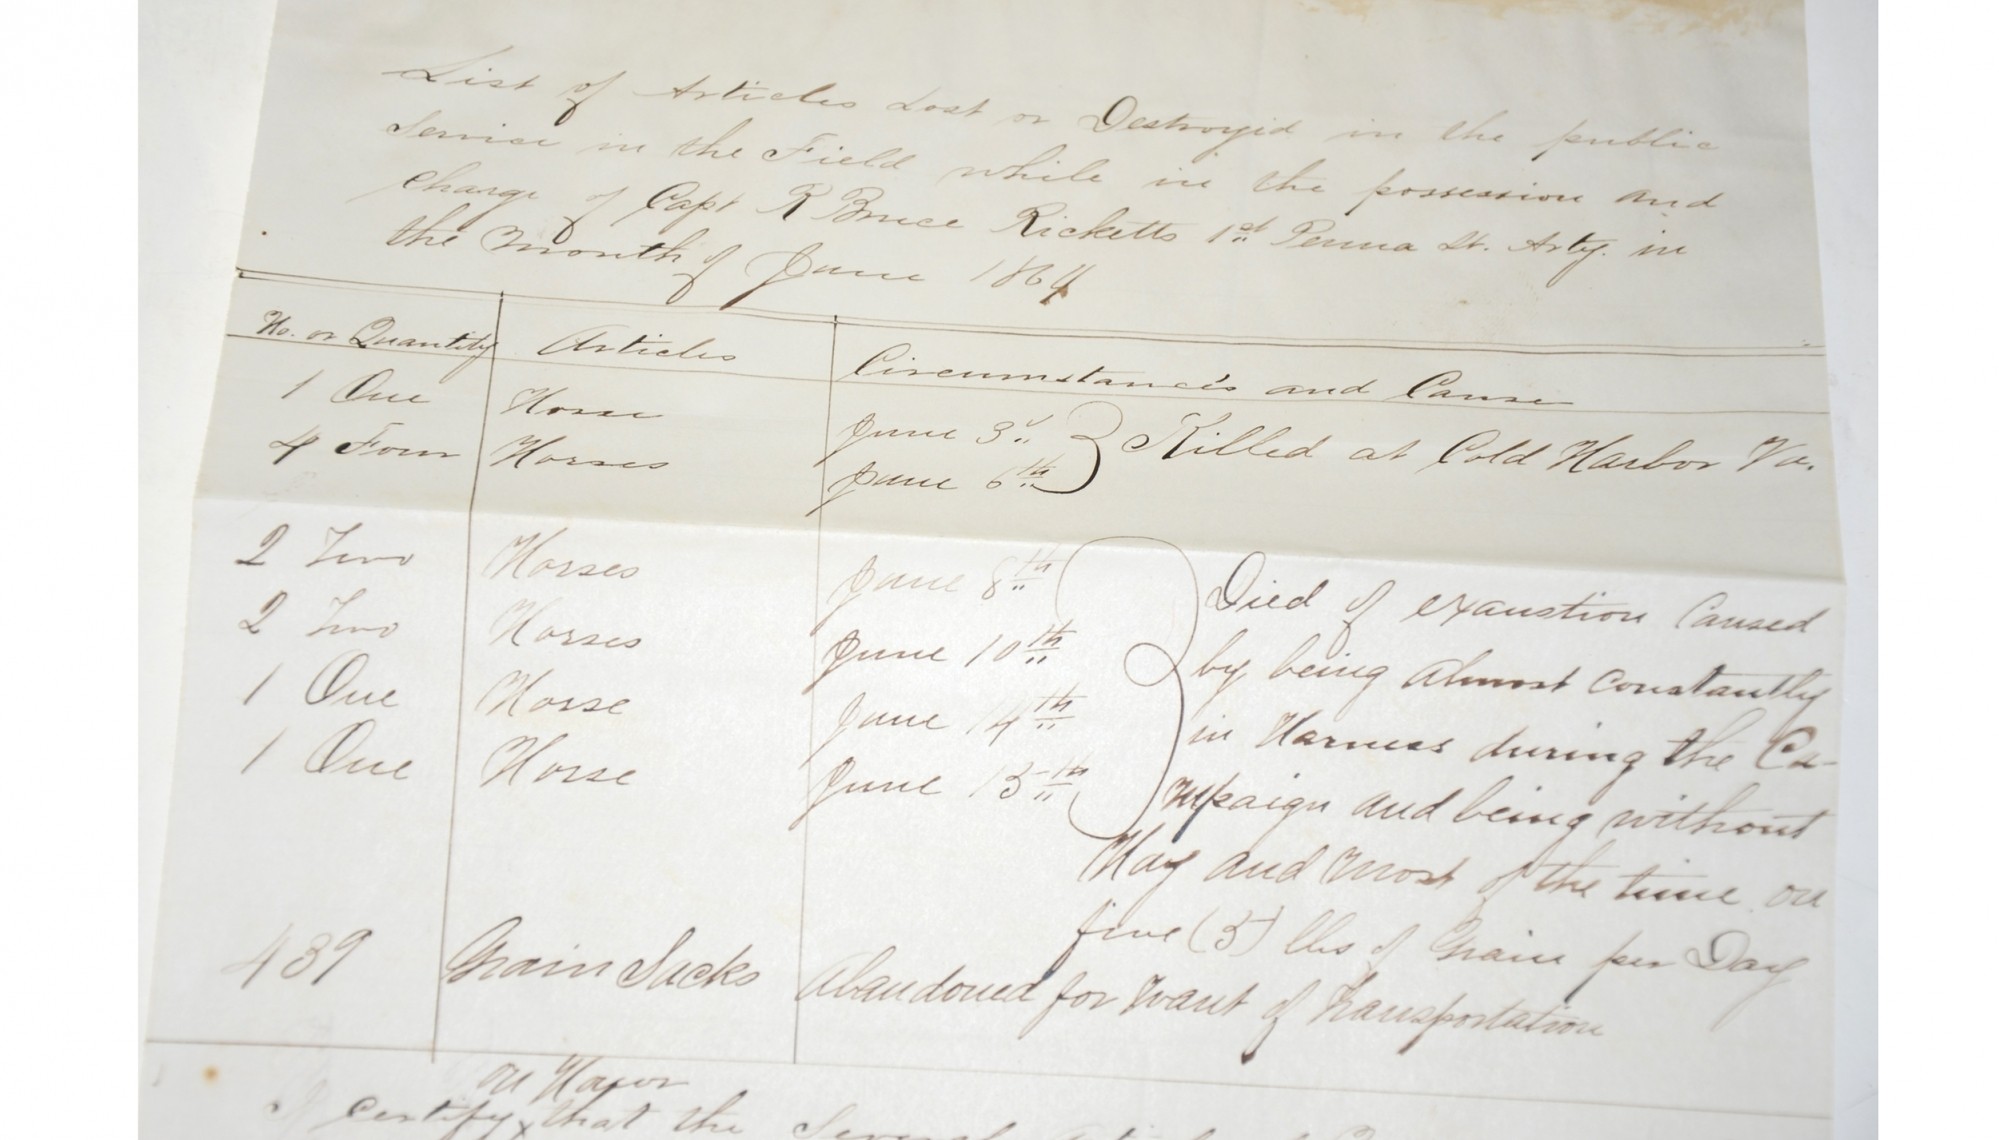 List of Articles Lost or Destroyid in the public
Service in the Field while in the possession and
charge of Capt R Bruce Ricketts 1st Penna Lt. Arty. in
the Month of June 1864
No. or Quantity Articles Circumstances and Cause
1 One Horse June 3d Killed at Cold Harbor Va.
4 Four Horses June 6th
2 Two Horses June 8th Died of exaustion Caused
by being almost constantly
2 Two Horses June 10th in Harness during the Ca-
1 One Horse June 14th mpaign and being without
1 One Horse June 15th Hay and most of the time on
five (5) lbs of Grain per Day
439 Grain Sacks Abandoned for want of Transportation
on Honor
I certify x that the Several Articles